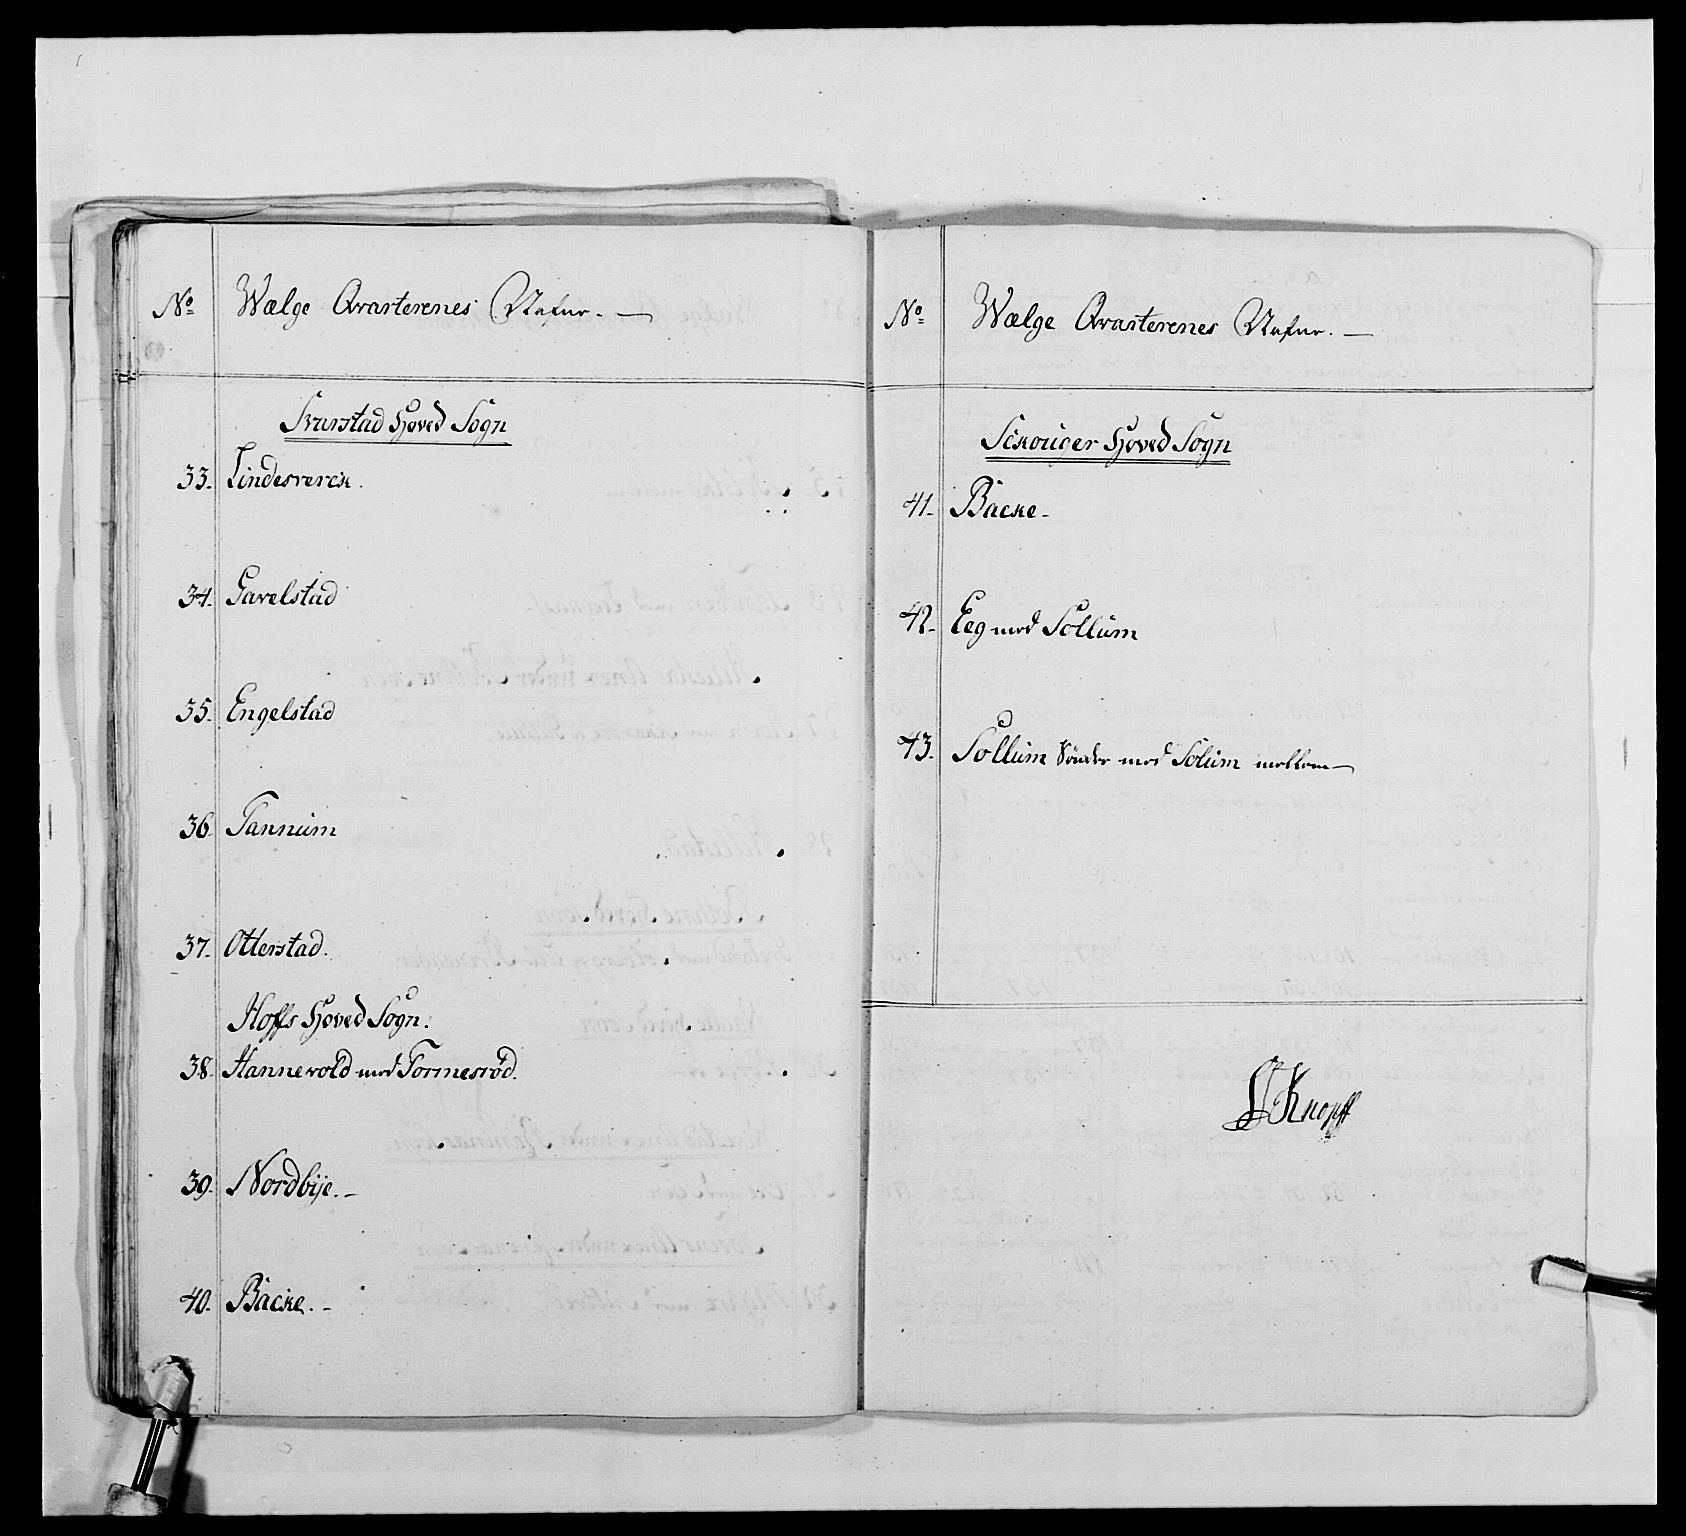 No Wælge Qvarterenes Nafne. —
Svarstad Hoved Sogn
33. Lindesverck.
34. Gavelstad
35. Engelstad
36. Tannum
37. Otterstad.
Hoffs Hoved Sogn.
38. Hannevold med Tormesröd.
39. Nordbije. -
40. Backe. -
No Wælge Qvarterenes Nafne. —
Sckouger Hoved Sogn
41. Backe -
42. Eeg med Sollum
43. Sollum Sönder med Solum mellem —
Knopff